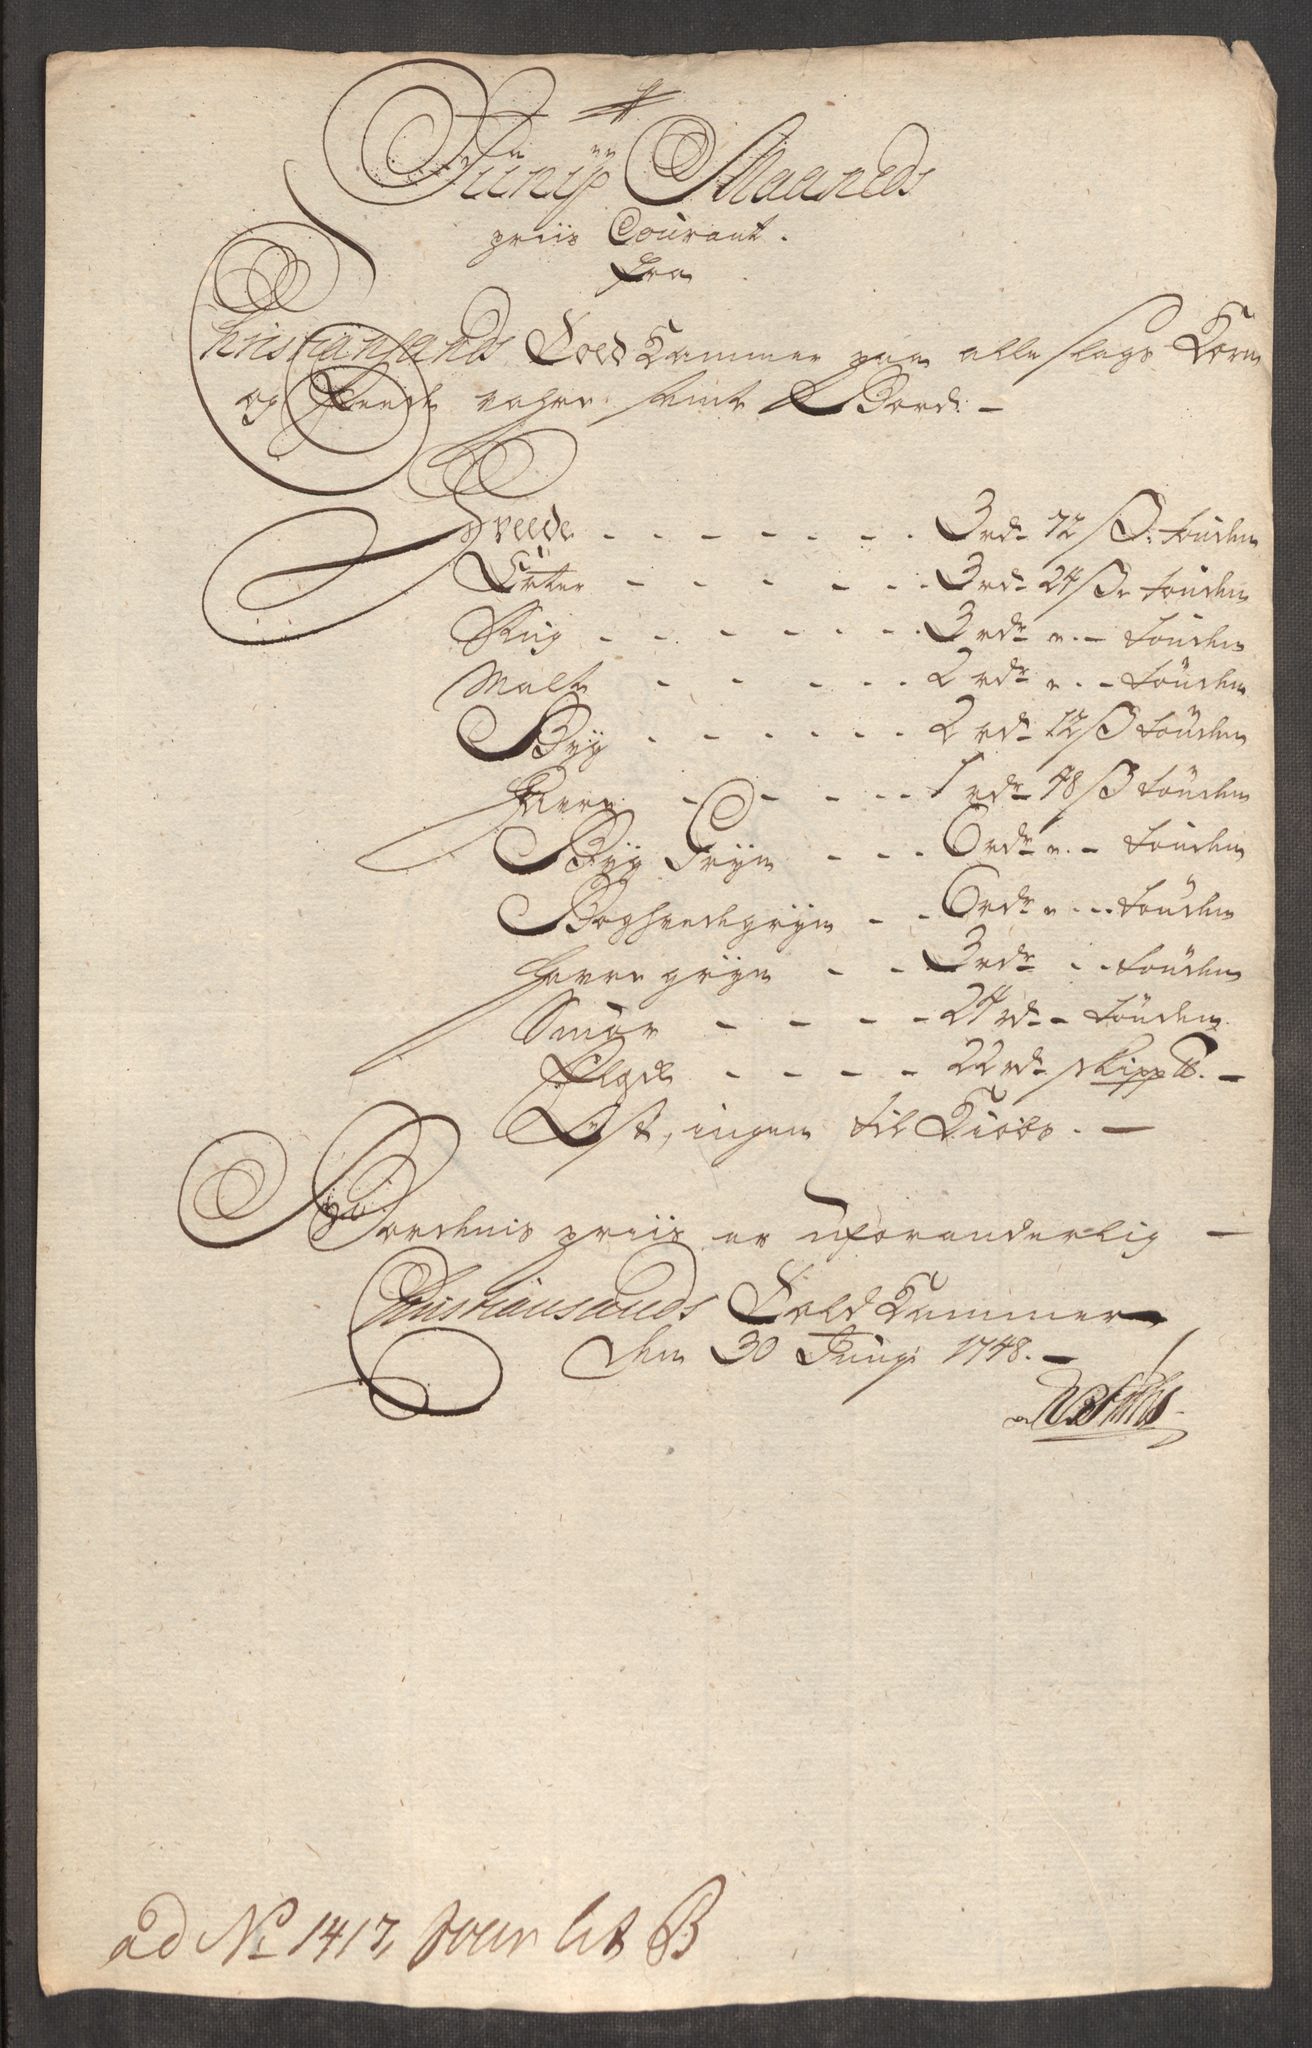 Junij Maaneds
priis Courant.
fra
Christiansands Told Kammer paa alle slags Korn
og Feede vahre samt Bord. –
Hvede - - - - - - - 3 rdr 72 ß. tönden
Erter - - - - - - 3 rdr 24 ß tönden
Rug - - - - - - - 3 rdr " - tönden
Malt - - - - - 2 rdr " - tönden
Byg - - - - - - 2 rdr 12 ß tönden
Havre - - - - - 1 rdr 48 ß tönden
Byg Gryn - - - 6 rdr " - tönden
Boghvede gryn - - 6 rdr " - tönden
havre gryn - - 3 rdr - - tönden
Smör - - - - 24 rd - tönden.
Flesk - - - - 22 rd skipp℔. –
Ost, ingen til Kiöbs. –
Bordenis priis er uforanderlig –
Christiansands Told Kammer
den 30 Junij 1748. –
ad No 1417, Jour lit B